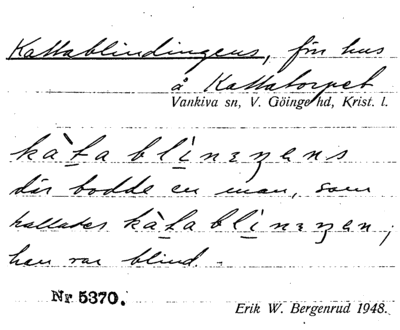 Kattablindingens, förr hus
å Kattatorpet
Vankiva sn, V. Göinge hd, Krist. l.
där bodde en man, som
kallades
han var blind.
Nr 5370.
Erik W. Bergenrud 1948.